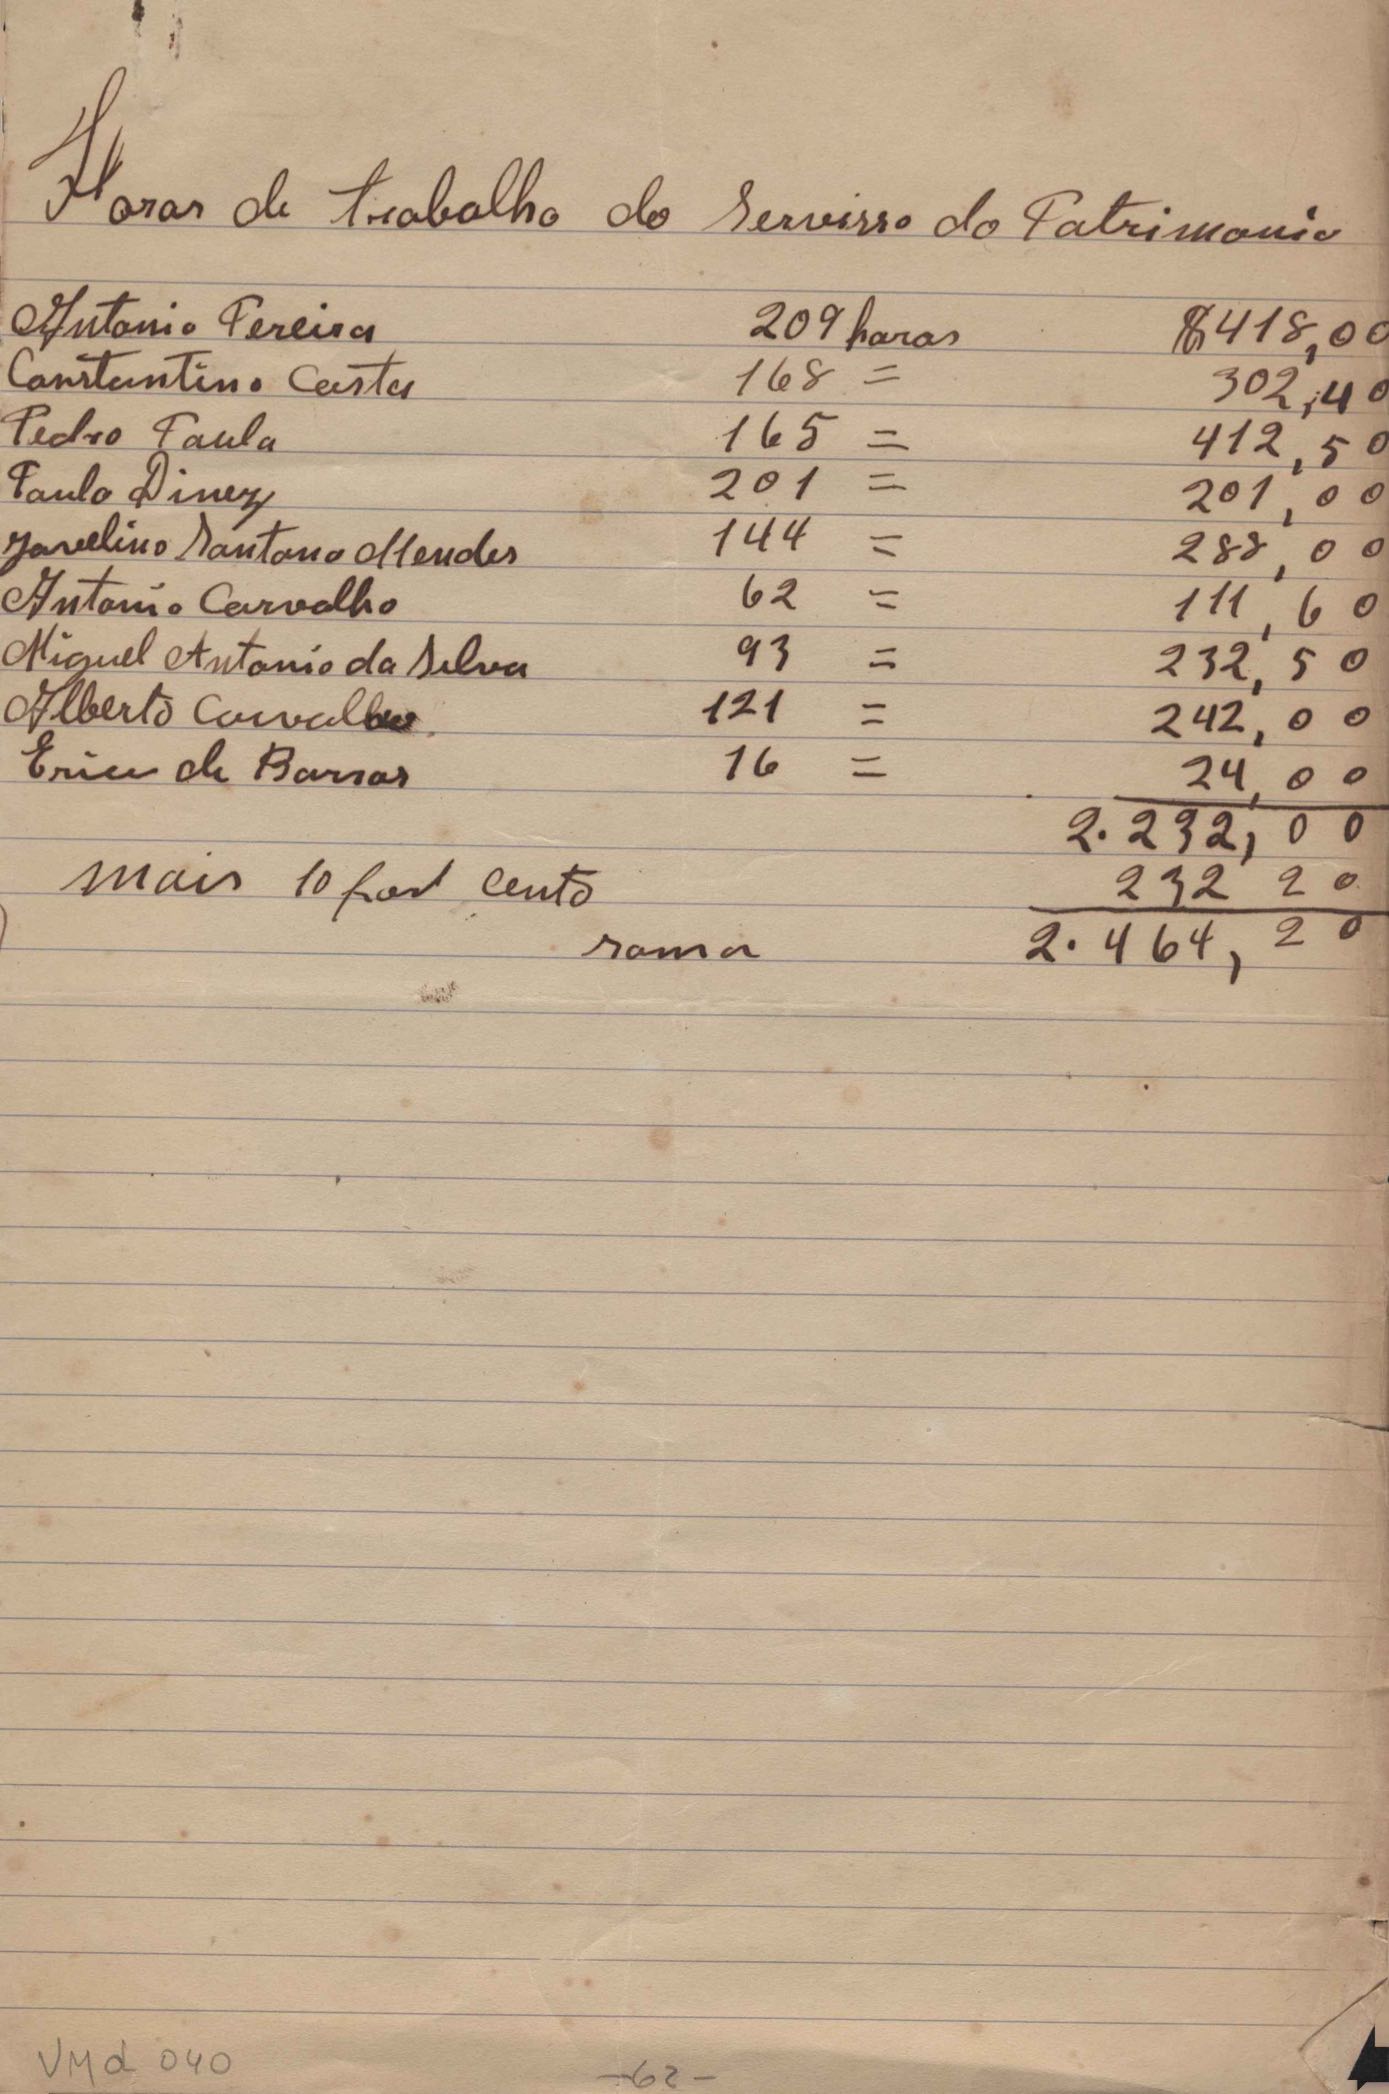 Horas de trabalho do Servisso do Patrimonio
Antonio Pereira 209 horas $418,00
Constantino Costa 168 = 302,40
Pedro Paula 165 = 412,50
Paulo Dinez 201 = 201,00
Joveelino Santana Mendes 144 = 288,00
Antonio Carvalho 62 = 111,60
Miguel Antonio da Silva 93 = 232,50
Alberto Carvalho 121 = 242,00
de Barros 16 = 24,00
2.232,00
mais 10 por cento 232 20
soma 2.464,20
VMd 040
-62-